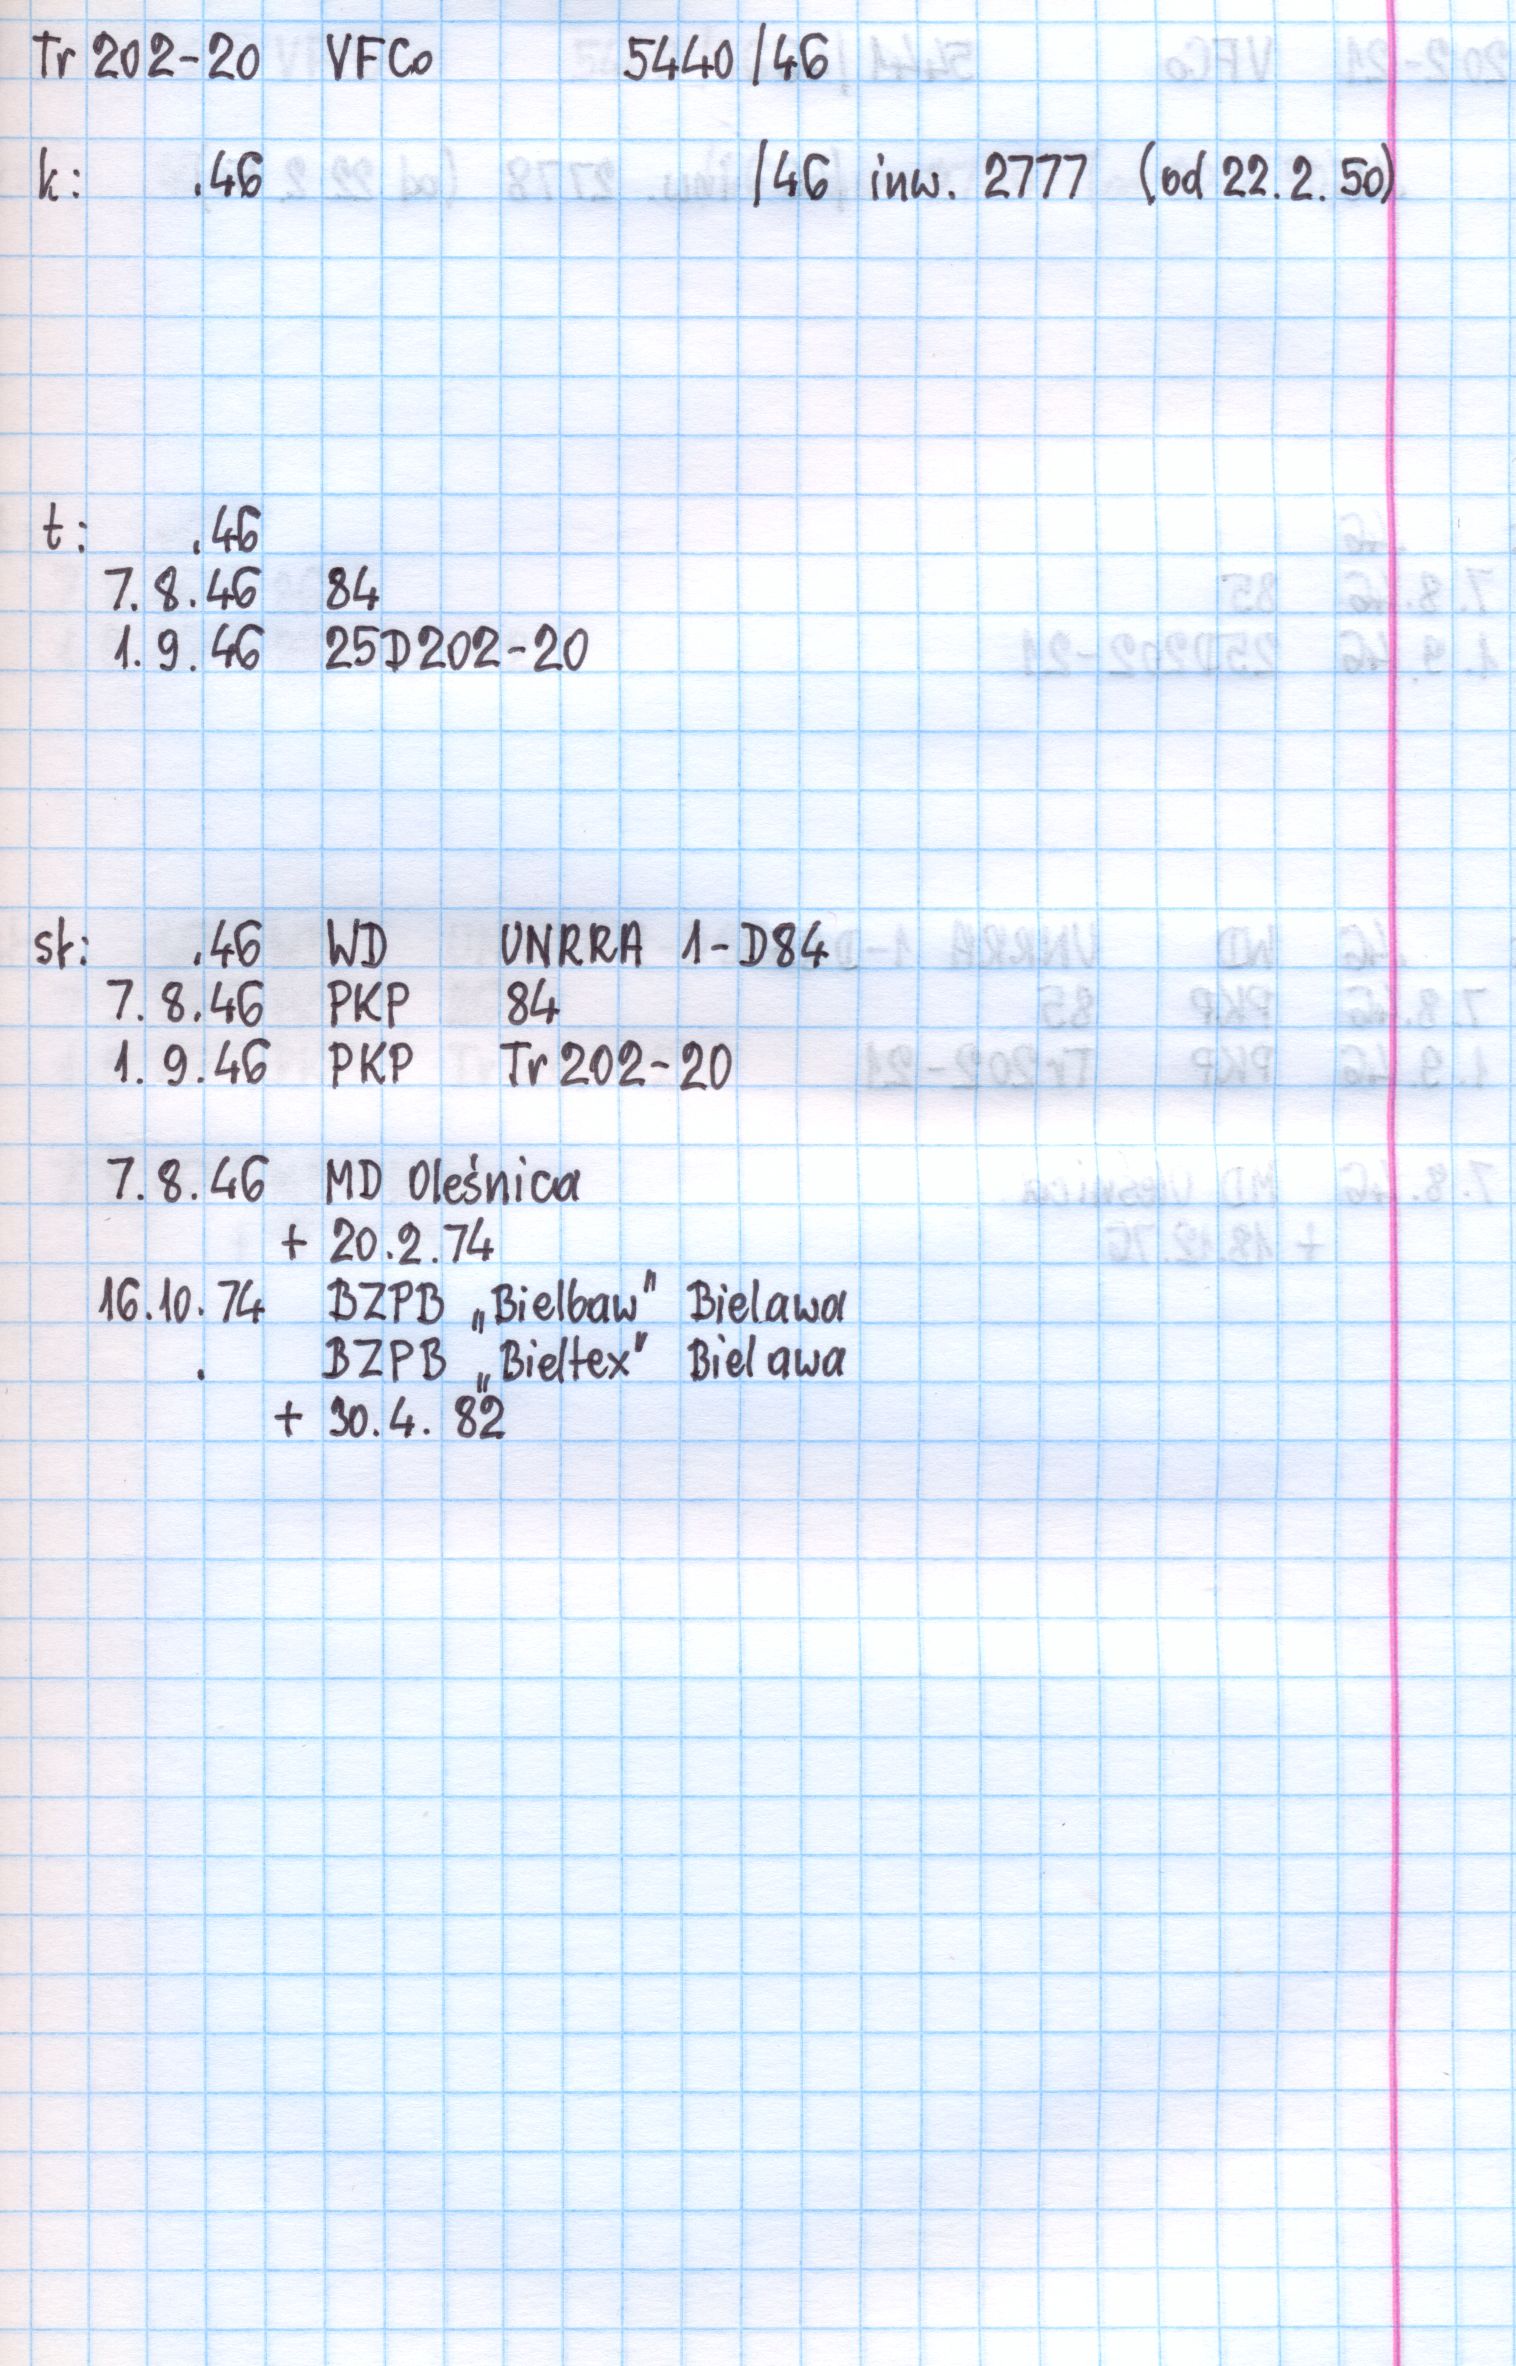 Tr 202-20 VFCo 5440/46
k: .46 /46 inw. 2777 (od 22.2.50)
t: .46
7.8.46 84
1.9.46 25D202-20
st: .46 WD UNRRA 1-D84
7.8.46 PKP 84
1.9.46 PKP Tr 202-20
7.8.46 MD Oleśnica
+ 20.2.74
16.10.74 BZPB „Bielbaw" Bielawa
. BZPB „Bieltex" Bielawa
+ 30.4.82